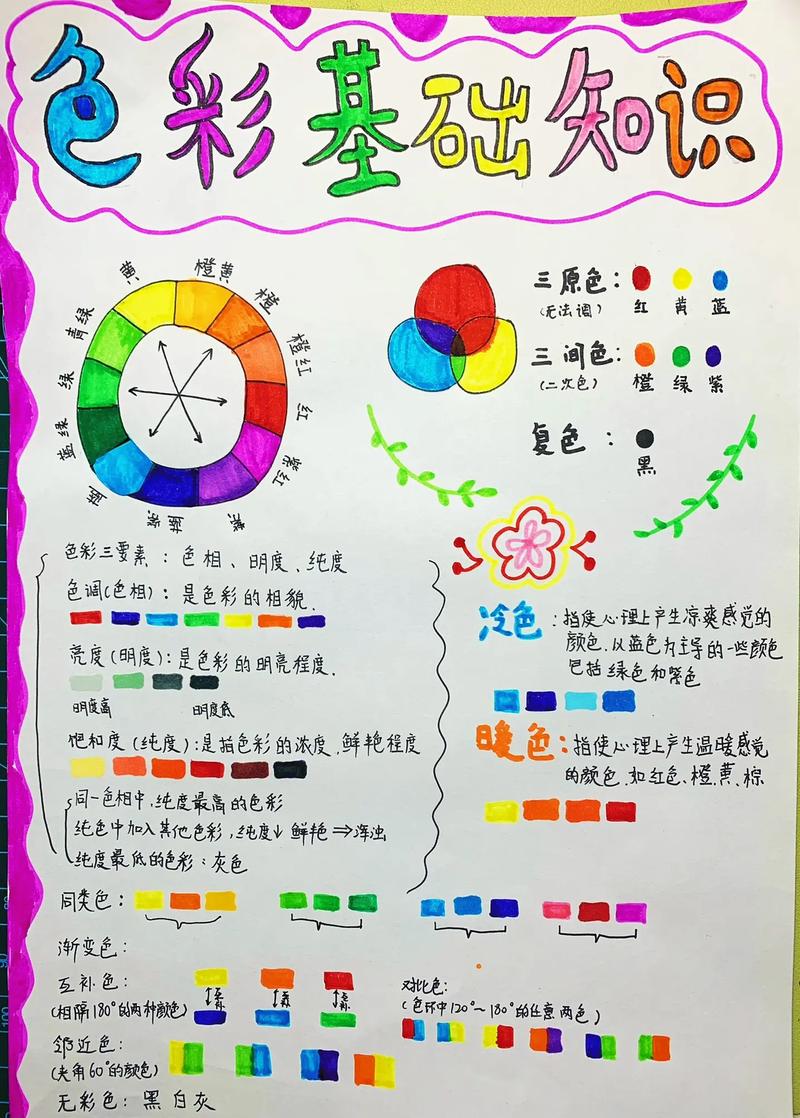 色彩基础知识
黄
橙黄
橙
橙红
红
紫红
紫
蓝紫
蓝
蓝绿
绿
青绿
三原色：
(无法调)
红 黄 蓝
三间色：
(二次色)
橙 绿 紫
复色：
黑
色彩三要素：色相、明度、纯度
色调(色相)：是色彩的相貌.
亮度(明度)：是色彩的明亮程度.
明度高 明度低
饱和度(纯度)：是指色彩的浓度,鲜艳程度
同一色相中,纯度最高的色彩
纯色中加入其他色彩,纯度↓ 鲜艳⇒浑浊
纯度最低的色彩：灰色
冷色：指使心理上产生凉爽感觉的
颜色.以蓝色为主导的一些颜色
包括绿色和紫色
暖色：指使心理上产生温暖感觉
的颜色.如红色、橙、黄、棕
同类色：
渐变色：
互补色：
(相隔180°的两种颜色)
互补 互补 互补
对比色：
(色环中120°～180°的任意两色)
邻近色：
(夹角60°的颜色)
无彩色：黑 白 灰